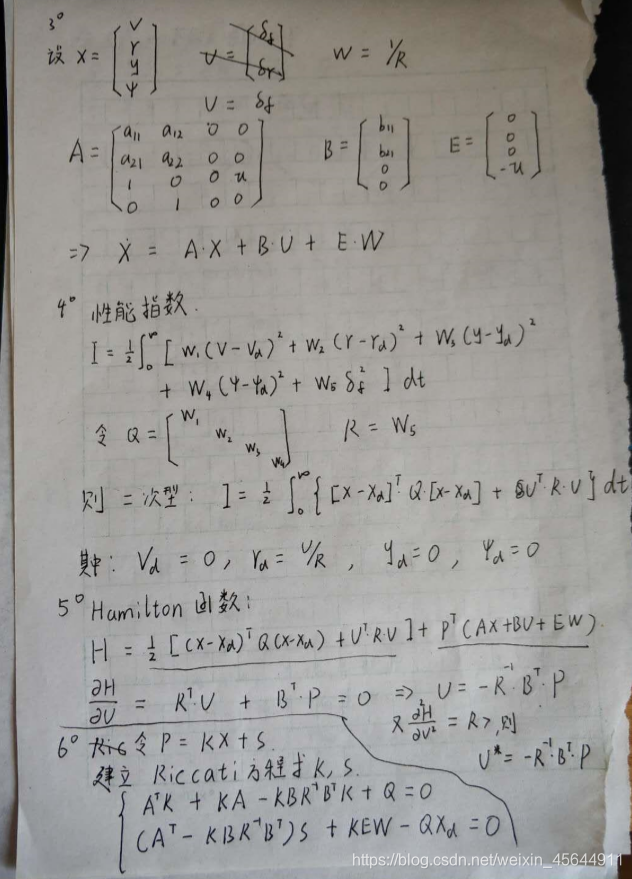 3°
设 X = [V r y ψ] U = [δf δr] W = 1/R
U = δf
A = [a11 a12 0 0
a21 a22 0 0
1 0 0 u
0 1 0 0] B = [b11 b21 0 0] E = [0 0 0 -u]
=> Ẋ = A·X + B·U + E·W
4° 性能指数.
I = ½∫₀^∞ [ W₁(V-Vd)² + W₂(r-rd)² + W₃(y-yd)²
+ W₄(ψ-ψd)² + W₅ δf² ] dt
令 Q = [W₁ W₂ W₃ W₄] R = W₅
则 二次型: J = ½ ∫₀^∞ { [X-Xd]ᵀ·Q·[X-Xd] + Uᵀ·R·Uᵀ } dt
其中: Vd = 0, rd = U/R, yd = 0, ψd = 0
5° Hamilton 函数:
H = ½ [(X-Xd)ᵀQ(X-Xd) + Uᵀ·R·U] + Pᵀ(AX+BU+EW).
∂H/∂U = Rᵀ·U + Bᵀ·P = 0 => U = -R⁻¹·Bᵀ·P
又 ∂H/∂U² = R>, 则
U* = -R⁻¹·Bᵀ·P
6° 令 P = KX + S.
建立 Riccati 方程求 K, S.
{ AᵀK + KA - KBR⁻¹BᵀK + Q = 0
(Aᵀ - KBR⁻¹Bᵀ)S + KEW - QXd = 0
https://blog.csdn.net/weixin_45644911